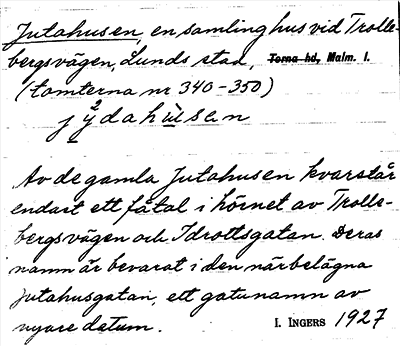 Jutahusen, en samling hus vid Trolle-
bergsvägen, Lunds stad, Torna hd, Malm. l.
(tomterna nr 340-350)
jy²dahu̇san
Av de gamla Jutahusen kvarstår
endast ett fåtal i hörnet av Trolle-
bergsvägen och Idrottsgatan. Deras
namn är bevarat i den närbelägna
Jutahusgatan, ett gatunamn av
nyare datum. I. INGERS 1927